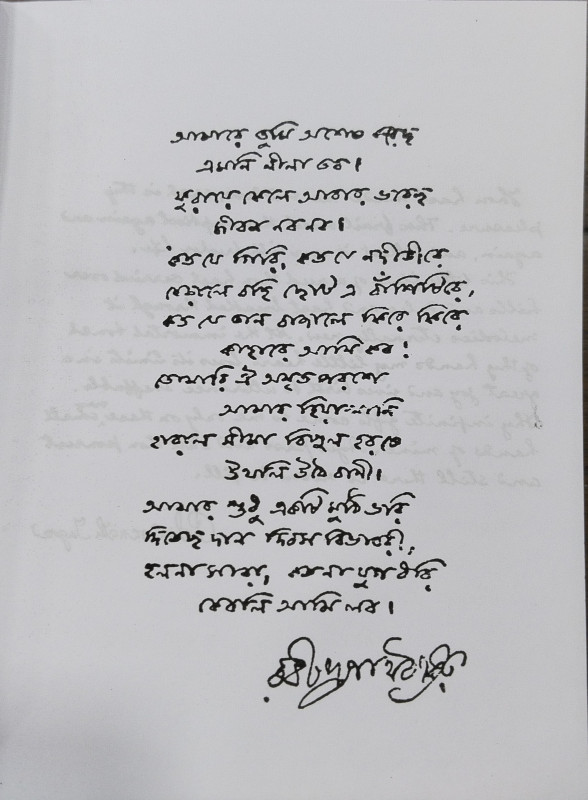 আমারে তুমি অশেষ করেছ
এমনি লীলা তব।
ফুরায়ে ফেলে আবার ভরেছ
জীবন নব নব।
কত যে গিরি, কত যে নদীতীরে
বেড়ালে বহি ছোট এ বাঁশিটিরে,
কত যে তান বাজালে ফিরে ফিরে
কাহারে তাহা কব।
তোমারি ঐ অমৃত পরশে
আমার হিয়াখানি
হারাল সীমা বিপুল হরষে
উথলি উঠে বাণী।
আমার শুধু একটি মুঠি ভরি
দিতেছ দান দিবস বিভাবরী,
হলনা সারা, কতনা যুগ ধরি
কেবলি আমি লব।
রবীন্দ্রনাথ ঠাকুর